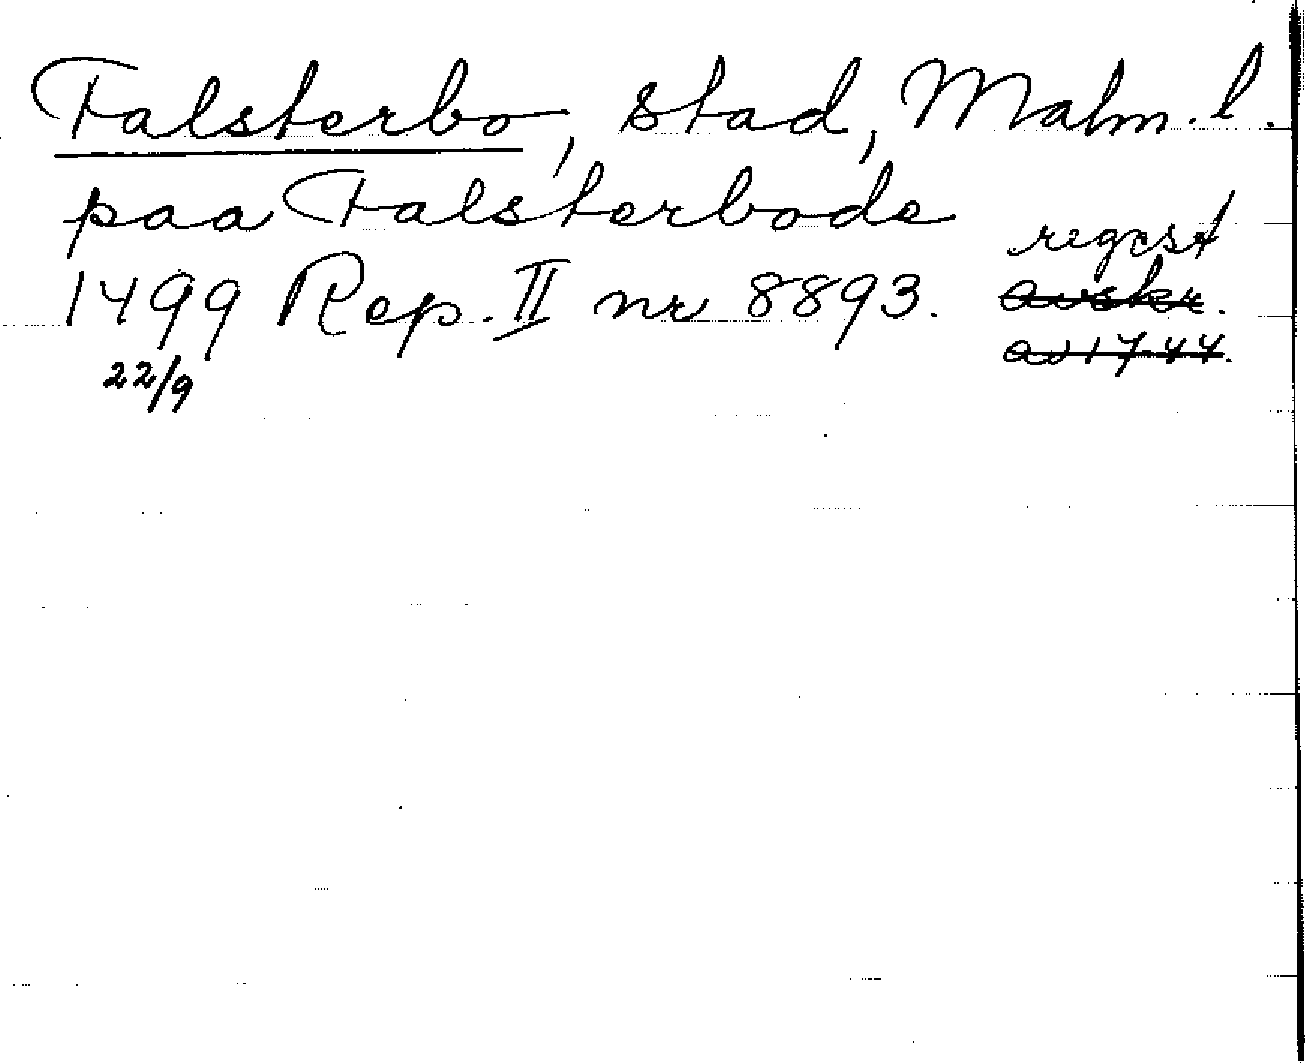 Falsterbo, stad, Malm. l.
paa Falsterbode
regest
1499 Rep. II nr 8893.
avskr.
av 1744.
22/9